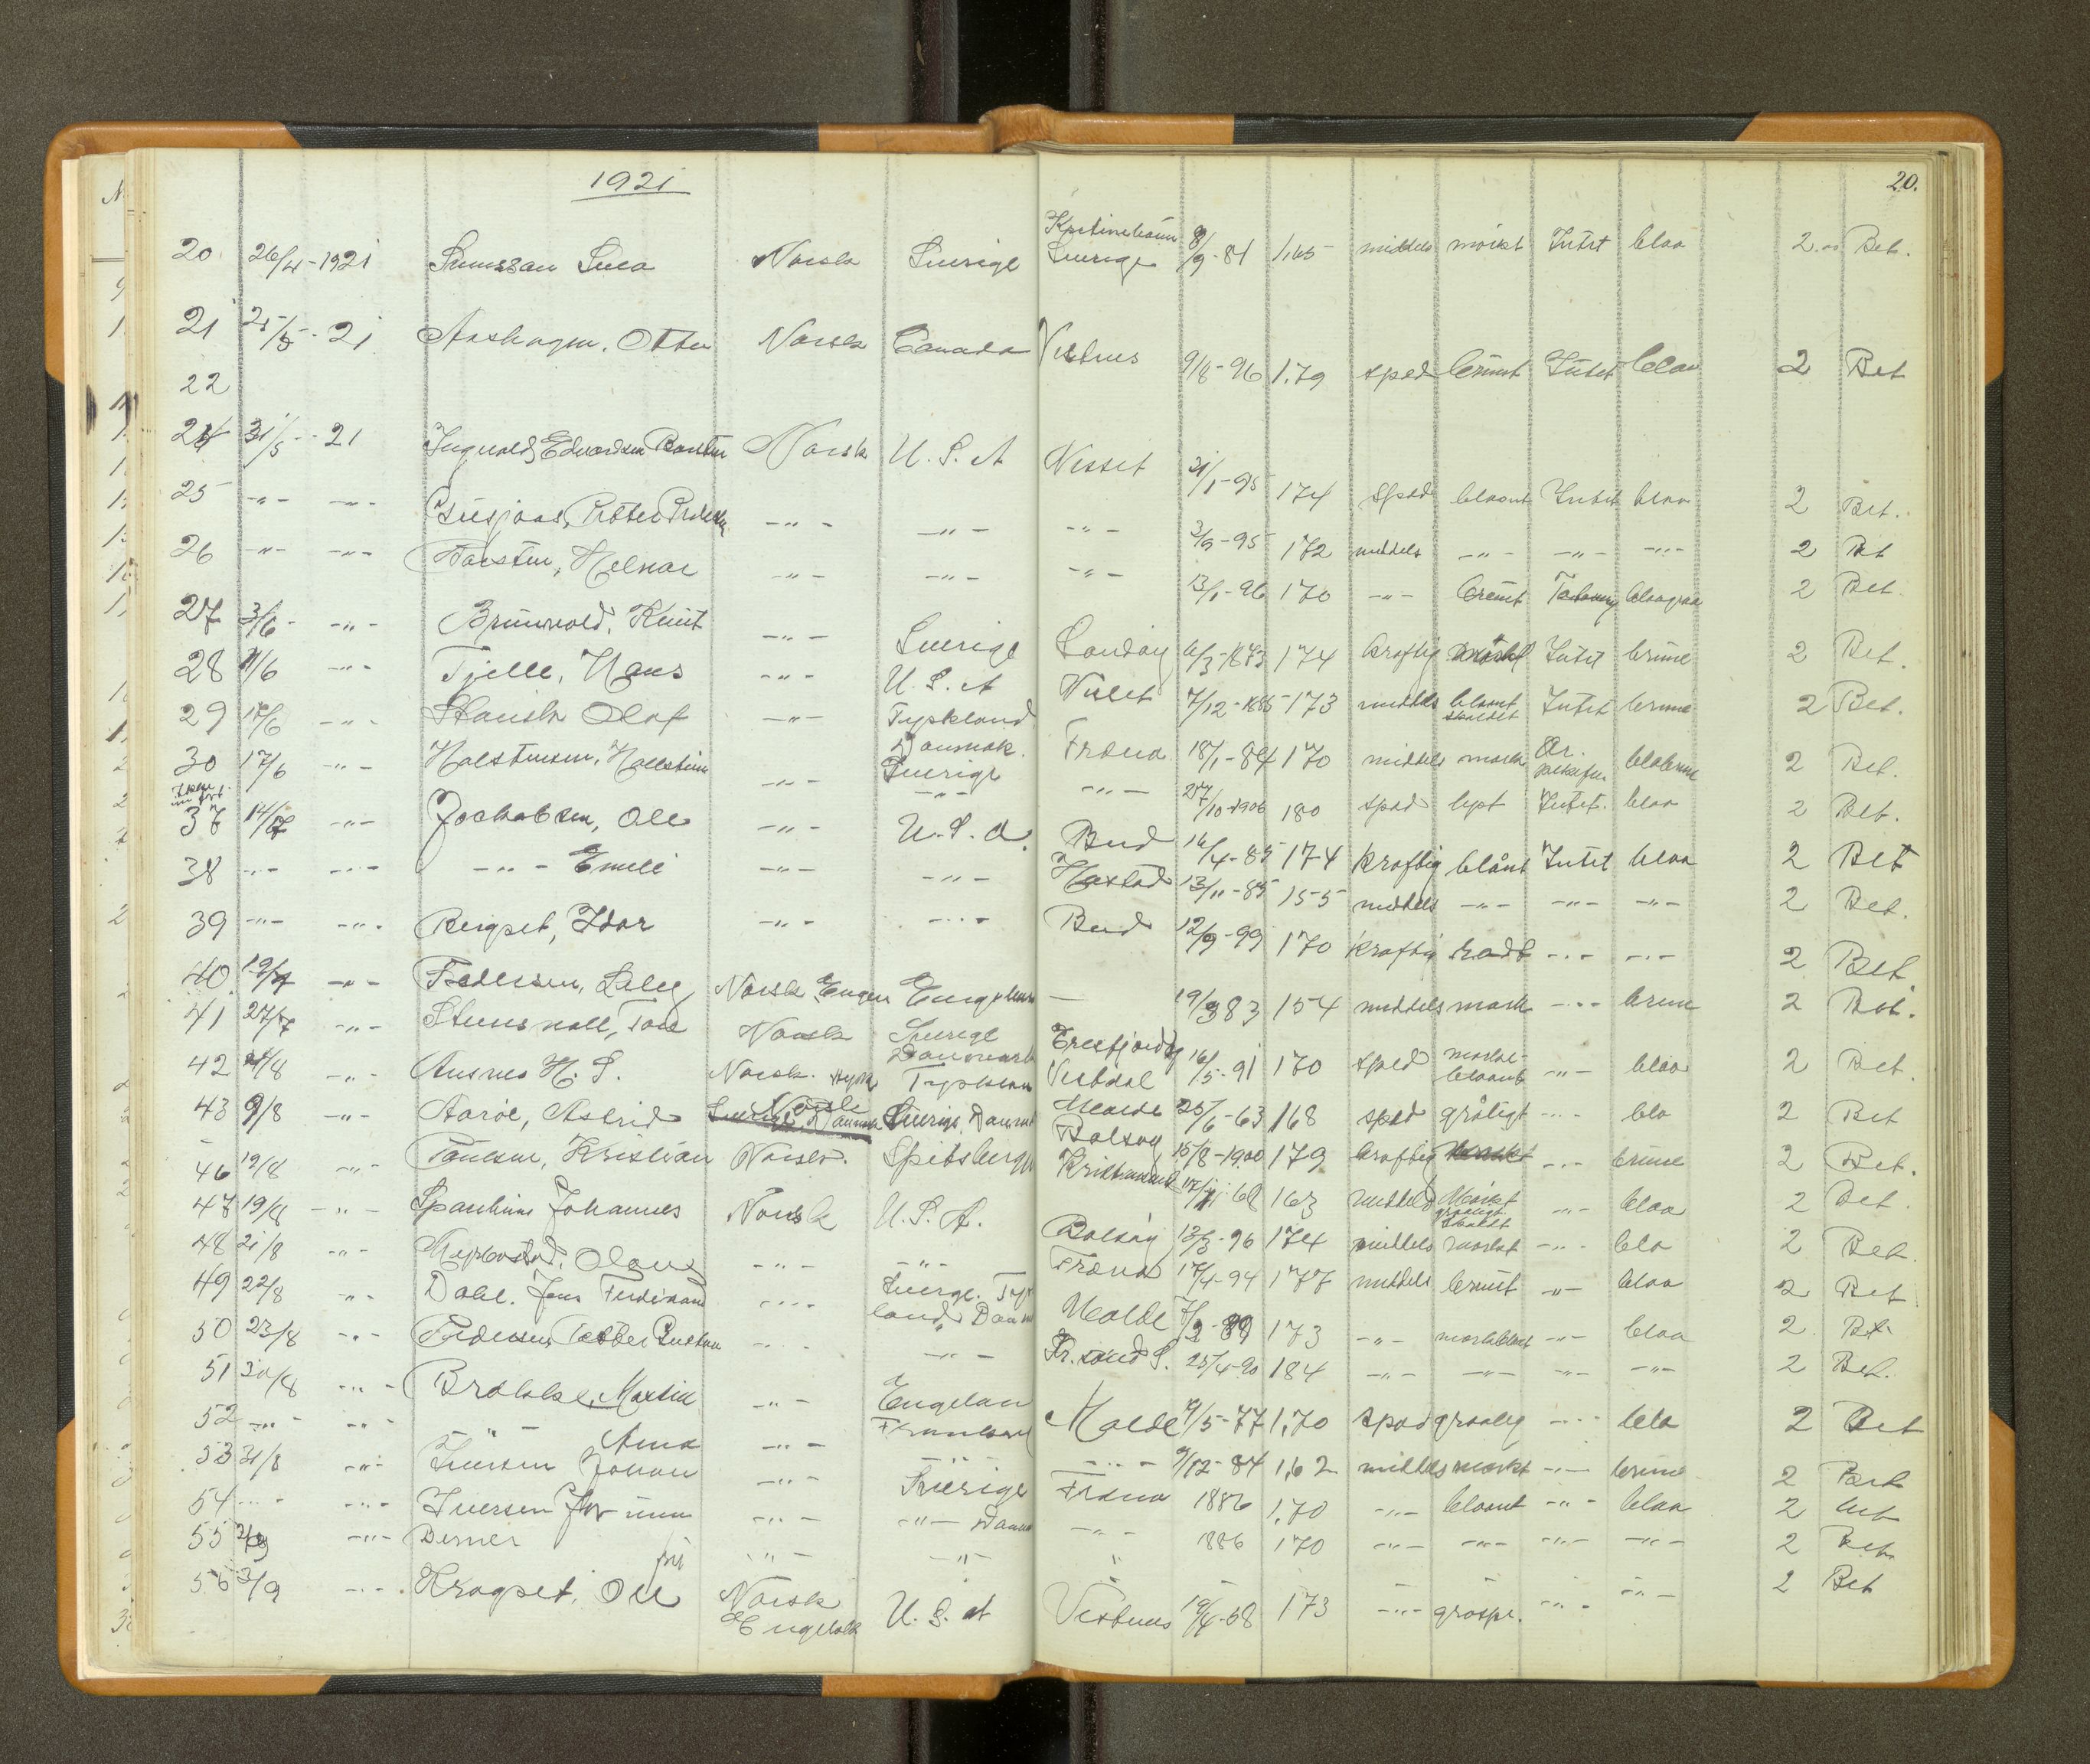 1921
20.
20 26/4-1921 Norsk Sverige Sverige 8/9-84 1,65 middels mørkt Intet blaa 2.00 Bet.
21 25/5-21 Aashagen, Otto Norsk Canada Vestnes 9/8-96 1.79 sped brunt Intet blaa 2 Bet
22
24 31/5-21 Ingvald Edvardsen Norsk U.S.A Nesset 21/1-95 174 sped blaant Intet blaa 2 Bet.
25 -"- -"- -"- -"- -"- 3/9-95 172 middels -"- -"- -"- 2 Bet
26 -"- -"- Torsten, Helnar -"- -"- -"- 13/1-96 170 -"- brunt blaagraa 2 Bet
27 3/6- -"- Brunvold, Knut -"- Sverige Sandøy 6/3-1873 174 kraftig mørkt Intet brune 2 Bet.
28 11/6 -"- Tjelle, Hans -"- U.S.A Nesset 7/12-1885 173 middels blaant skaldet Intet brune 2 Bet.
29 17/6 -"- Olaf -"- Tyskland Danmark. Fræna 18/1-84 170 middels mørk Ar. pekefin. blabrune 2 Bet.
30 17/6 -"- Halstensen, Hallstein -"- Sverige -"- -"- 27/10-1906 180 sped lyst Intet. blaa 2 Bet.
37 14/7 -"- Jockobsen, Ole -"- U.S.A. Bud 16/4-85 174 kraftig blånt Intet blaa 2 Bet
38 -"- -"- -"- Emeli -"- -"- Harstad 13/11-85 155 middels -"- -"- -"- 2 Bet.
39 -"- -"- Bergset, Idar -"- -"- Bud 12/9-99 170 kraftig rødt -"- -"- 2 Bet
40. 19/7 -"- Pedersen, Norsk Engen England — 19/3 83 154 middels mørk -"- brun 2 Bet.
41 27/7 -"- Tore Norsk Sverige Danmark Eresfjord og Vistdal 16/5-91 170 sped mørke-blaant -"- blaa 2 Bet.
42 /8 -"- Ausnes H. S. Norsk. Tyskland Molde 25/6-63 168 sped gråligt -"- bla 2 Bet
43 9/8 -"- Aarøe, Astrid Norsk Sverige, Danmark Sverige, Danm Bolsøy 15/8-1900 179 kraftig -"- brune 2 Bet.
46 19/8 -"- Kristian Norsk. Spitsbergen Kristiansund 68 163 middels Mørkt graaligt skaldt -"- blaa 2 Bet.
47 19/8 -"- Johannes Norsk U.S.A. Bolsøy 13/3-96 174 middels mørkt -"- bla 2 Bet.
48 21/8 -"- Olaus -"- -"- Fræna 17/4-94 177 middels brunt -"- blaa 2 Bet
49 22/8 -"- Dahl. Jens Ferdinand -"- Sverge. Tyskland Danm Molde 7/2-89 173 -"- mørkblant -"- blaa 2. Bet
50 23/8 -"- Pedersen -"- -"- Kr.sund S. 25/4-90 184 -"- -"- -"- -"- 2 Bet.
51 30/8 -"- Brakke, Martin -"- Englan Frankrig Molde /5-77 1,70 sped graalig -"- bla 2 Bet
52 -"- -"- " Anna -"- -"- -"- 9/12-84 1,62 middels mørkt -"- brune 2 Bet
53 31/8 -"- Iversen Johan -"- Sverige Fræna 1886 1,70 -"- blaant -"- blaa 2 Bet
54 -"- -"- Iversen -"- -"- Danm -"- 1886 170 -"- -"- -"- -"- 2 Bet
55 2/9 -"- Berner -"- -"- " 2 Bet
56 3/9 -"- Kragset, Ole Norsk Engelsk U.S.A Vestnes 19/4-68 173 -"- gråspr. -"- -"-